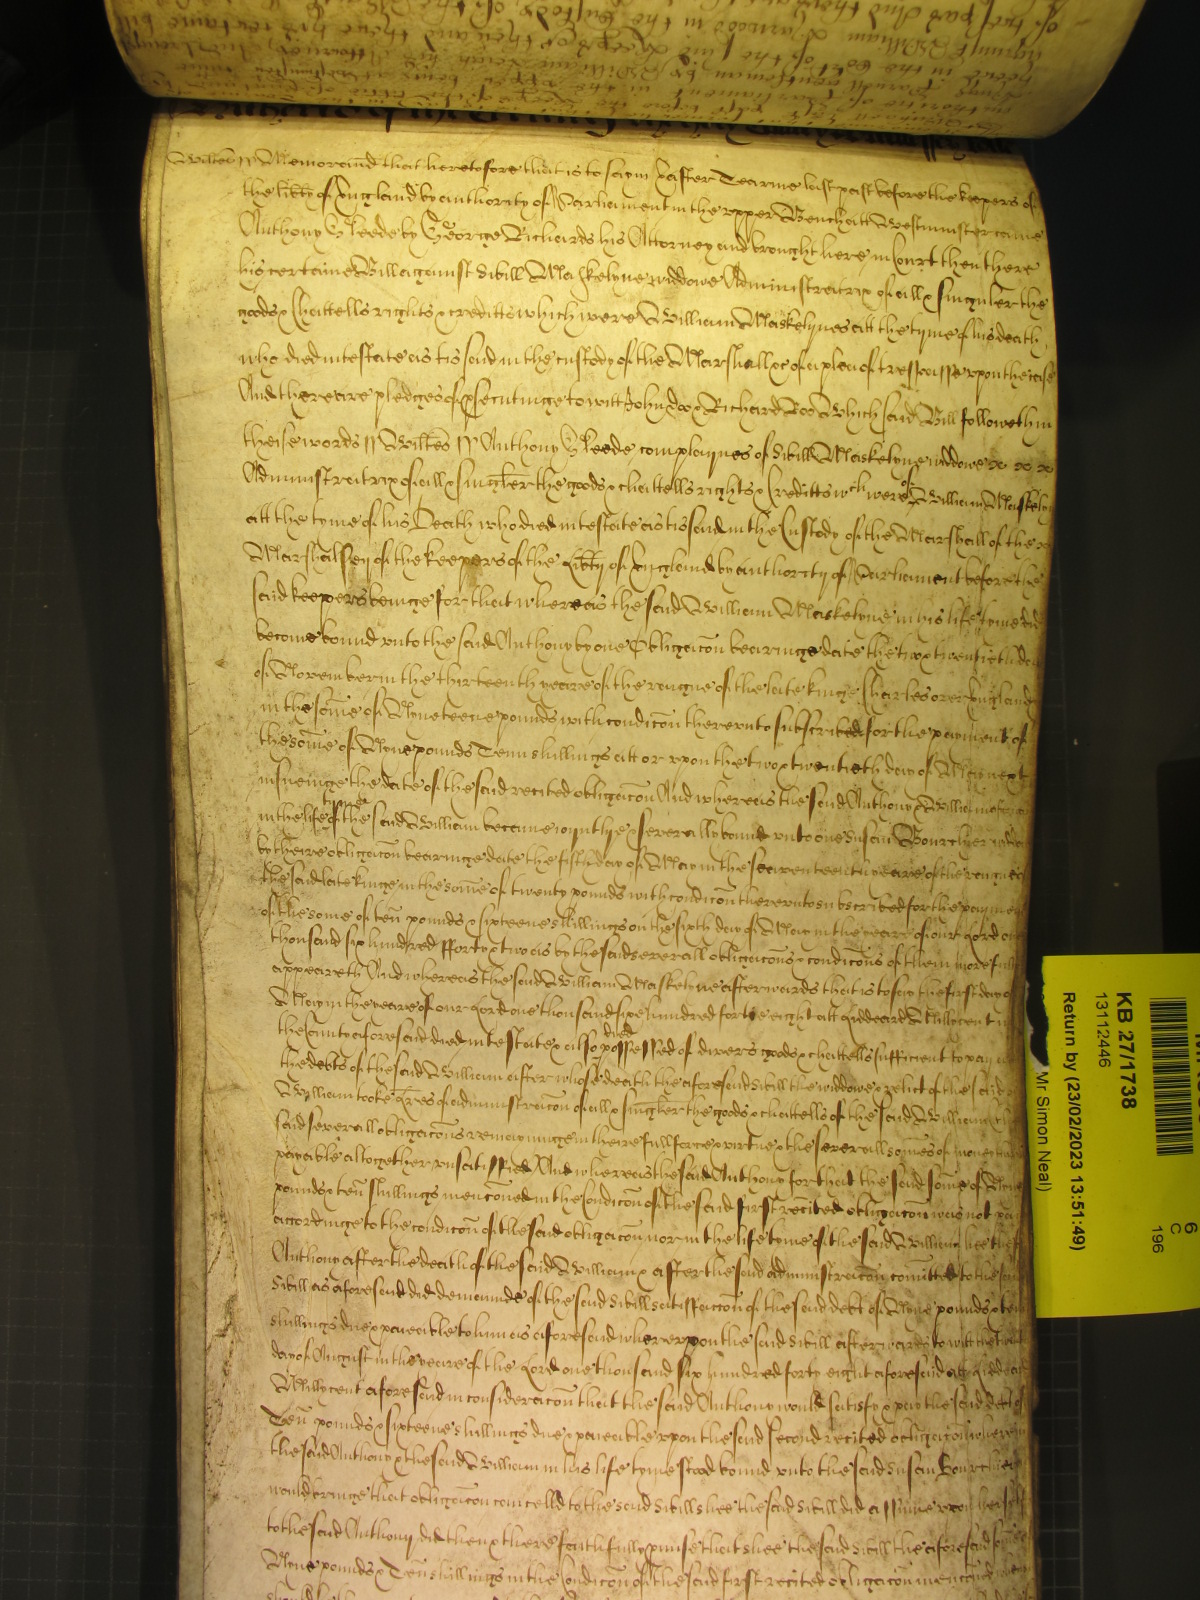 Wiltes ss Memorand that heretofore that is to say in Easter Tearme last past before the keepers of
the libty of England by authority of Parliament in the upper Bench att Westminster came
Anthony Gleede by George Richards his Attorney and brought here in Court then there
his certaine Bill against Sibill Maskelyne widdowe Administratrix of all & singuler the
goods Chattells rights & creditts which were William Maskelynes att the tyme of his death
who died intestate as tis said in the custody of the Marshall &c of a plea of trespasse upon the case
And there are pledges of psecutinge to witt John Doo & Richard Roo Which said Bill followeth in
theise words ss Wiltes ss Anthony Gleede complaynes of Sibill Maskelyne widdowe
Administratrix of all & singuler the goods & chattells rights & Creditts wch were of William Maskelyn
att the tyme of his Death who died intestate as tis said in the Custody of the Marshall of the
Marshalsey of the keepers of the Libty of England by authority of Parliament before the
said keepers beinge for that whereas the said William Maskelyne in his life tyme did
become bound unto the said Anthony by one Obligacon bearinge date the two & twentieth day
of November in the thirteenth yeare of the raigne of the late kinge Charles over England
in the some of Nyneteene pounds with condicon thereunto subscribed for the payment of
the some of Nyne pounds Tenn shillings att or upon the two & twentieth day of May next
insueinge the date of the said recited obligacon And whereas the said Anthony & William
in the life tyme of the said William became ioyntlye & severally bound unto one Susan Bourchier
by theire obligacon bearinge date the fifth day of May in the seaventeenth yeare of the raigne
the said late kinge in the some of twenty pounds with condicon thereunto subscribed for the payment
of the some of ten pounds & sixteene shillings on the sixth day of May in the yeare of our Lord one
thousand six hundred fforty & two as by the said severall obligacons & condicons of them more fully
appeareth And whereas the said William Maskelyne afterwards that is to say the first day of
May in the yeare of our Lord one thousand six hundred fortie eight att Liddeard Millycent in
the County aforesaid died intestate & also possessed of divers goods & chattells sufficient to pay
the debts of the said William after whose death the aforesaid Sibill the widdowe & relict of the said
William tooke lres of administracon of all & singuler the goods & chattells of the said William
said severall obligacons remayninge in theire full force & virtue & the severall somes of money
payable altogether unsatisfied And whereas the said Anthony for that the said some of Nyne
pounds & ten shillings menconed in the Condicon of the said first recited obligacon was not paid
accordinge to the condicon of the said obligacon nor in the life tyme of the said William hee the
Anthony after the death of the said William & after the said administracon comitted to the said
Sibill as aforesaid did demaunde of the said Sibill satisfaccon of the said debt of Nyne pounds & ten
shillings due & payeable to him as aforesaid whereupon the said Sibill afterwards to witt the
day of August in the yeare of the Lord one thousand six hundred forty eight aforesaid att Liddeard
Millycent aforesaid in consideracon that the said Anthony would satisfy & pay the said debt of
Tenn pounds & sixteene shillings due & payeable upon the said second recited obligacon wherein
the said Anthony & the said William in his life tyme stood bound unto the said Susan Bourchier
would bringe that obligacon cancelled to the said Sibill shee the said Sibill did assume upon herself
to the said Anthony did then & there faithfully pmise that shee the said Sibill the aforesaid some
Nyne pounds & Tenn shillings in the Condicon of the said first recited obligacon menconed
KB 27/1738
13112446
Return by (23/02/2023 13:51:49)
Mr Simon Neal)
6
C
196